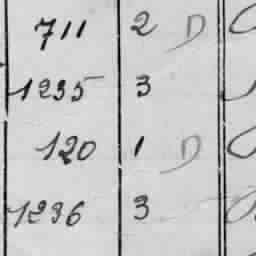 711 2 D
1235 3
120 1 D
1236 3